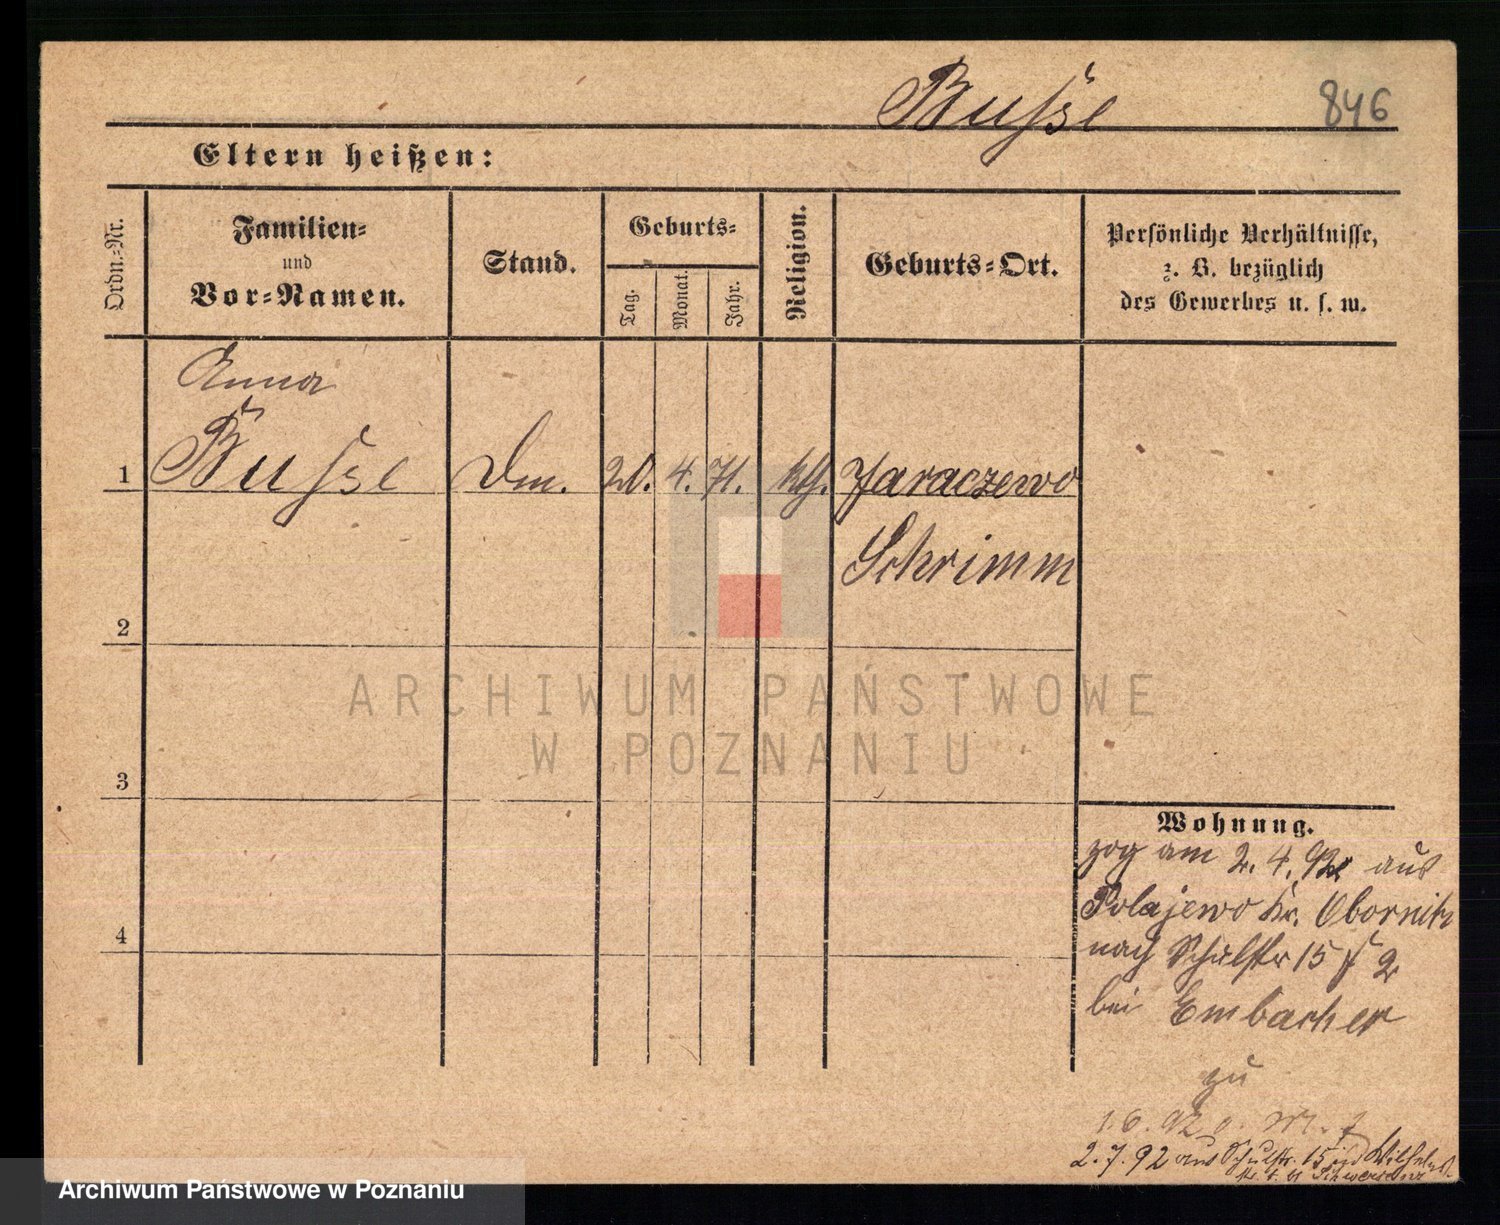 Busse 846
Eltern heißen:
Ordn.=Nr.
Familien=
und
Vor=Namen.
Stand.
Geburts=
Tag.
Monat.
Jahr.
Religion.
Geburts=Ort.
Persönliche Verhältnisse,
z. B. bezüglich
des Gewerbes u. s. w.
Anna
1 Busse 4. 71. kth. Jaraczewo
Schrimm
2
3
4
Wohnung.
zog am 2. 4. 92 aus
Polajewo Kr. Obornik
nach Schulstr 15 2
bei Embacher
zu
2.7.92 aus Schulstr. 15
ARCHIWUM PAŃSTWOWE
W POZNANIU
Archiwum Państwowe w Poznaniu